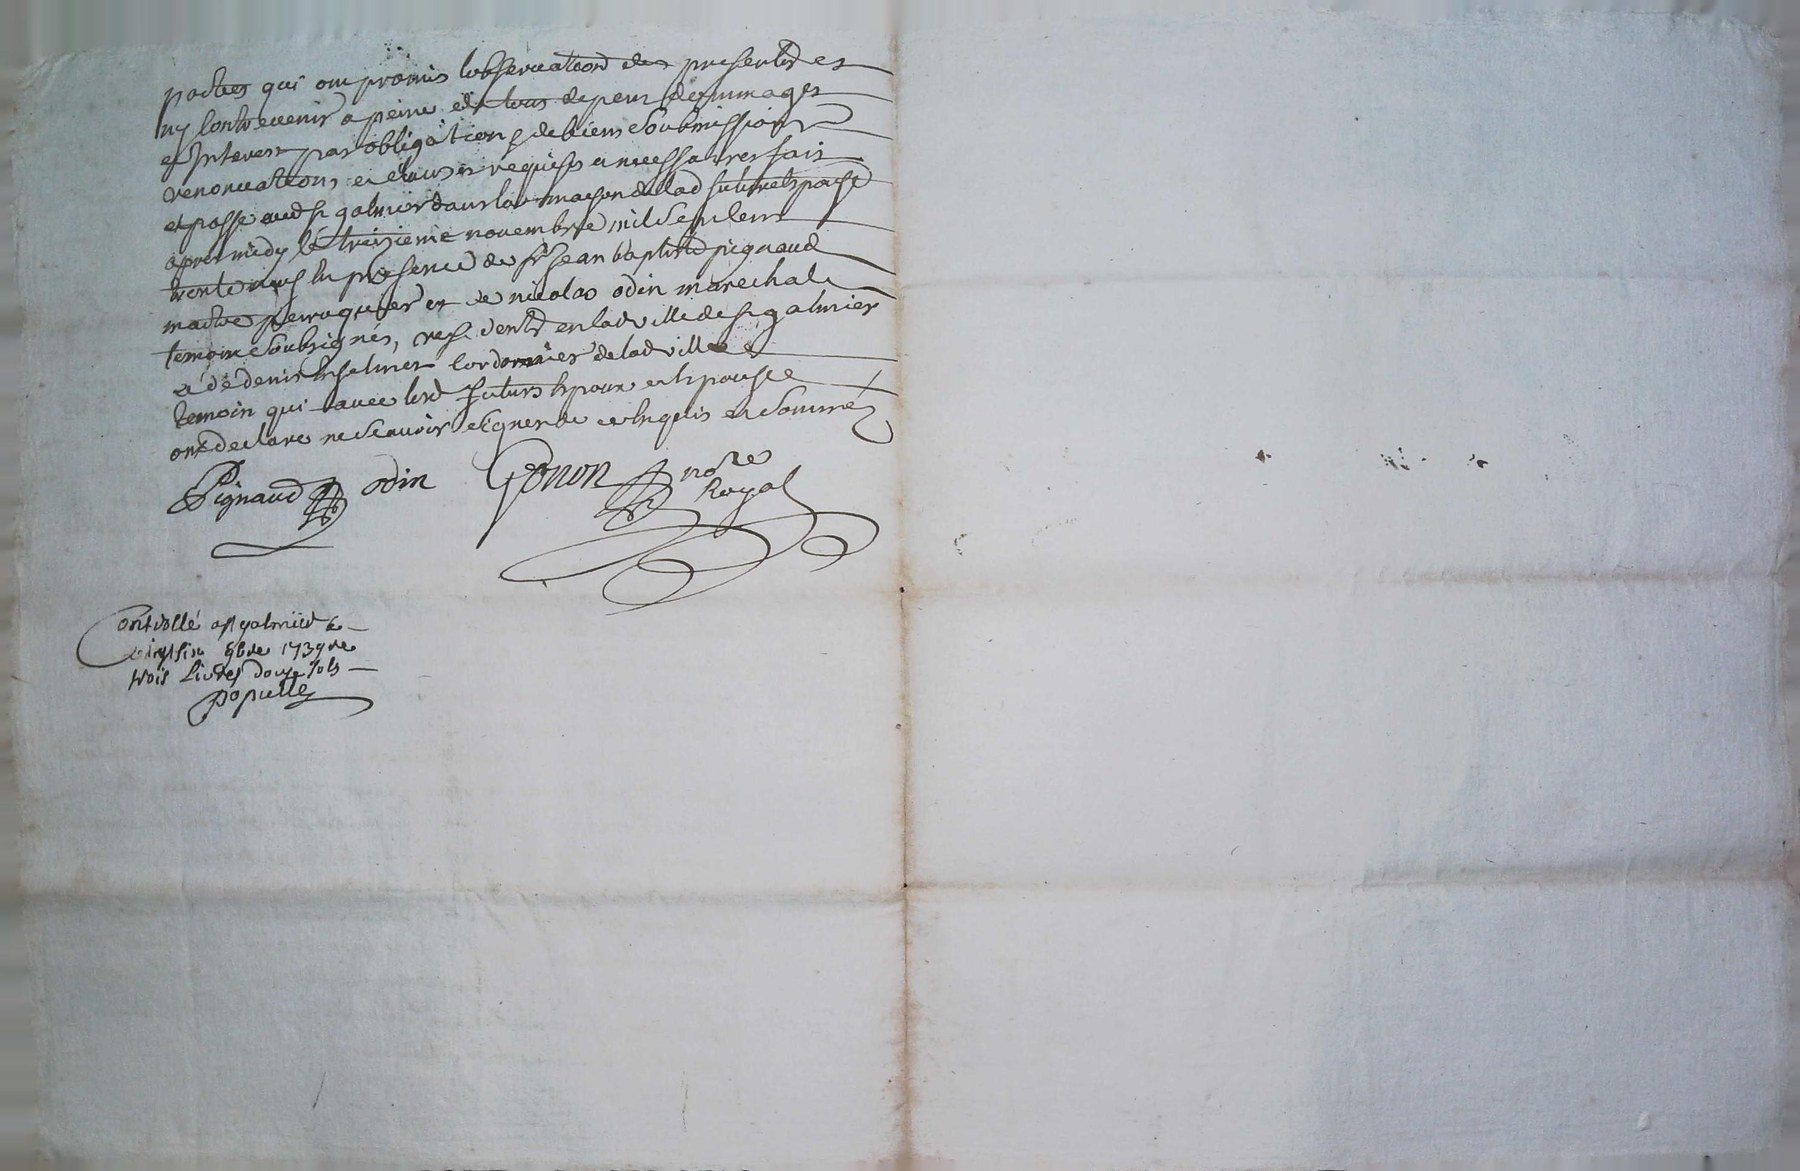 parties qui ont promis lobservation des presentes et
ny contrevenir a peine de tous depens dommages
et Interest par obligations de biens Soubmissions
renonciations et clauses requises et necessaires fait
et passe aud st galmier dans la maison de lad future Epouse
apres midy le treizieme novembre mil sept cent
trente neuf En presence de sr Jean baptiste pignaud
maitre perruquier et de nicolas odin marechal
temoins Soubsignés, residents en lad ville de st galmier
et de denis cordonnier de lad ville
temoin qui avec lesd futurs Epoux et Epouse
ont declare ne Scavoir Signer de ce Enquis et Sommés
Pignaud odin Gonon nore
Royal
Controllé a st galmier le
vingt six 9bre 1739 re
trois Livres douze sols
populle